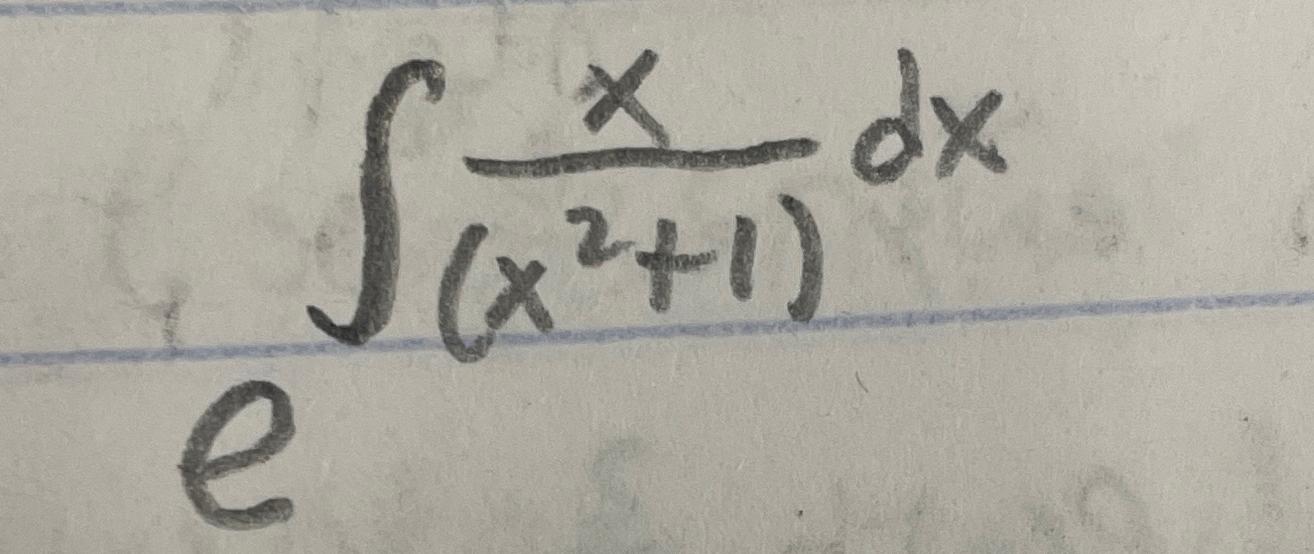 e^{\int \frac{x}{(x^2+1)} dx}